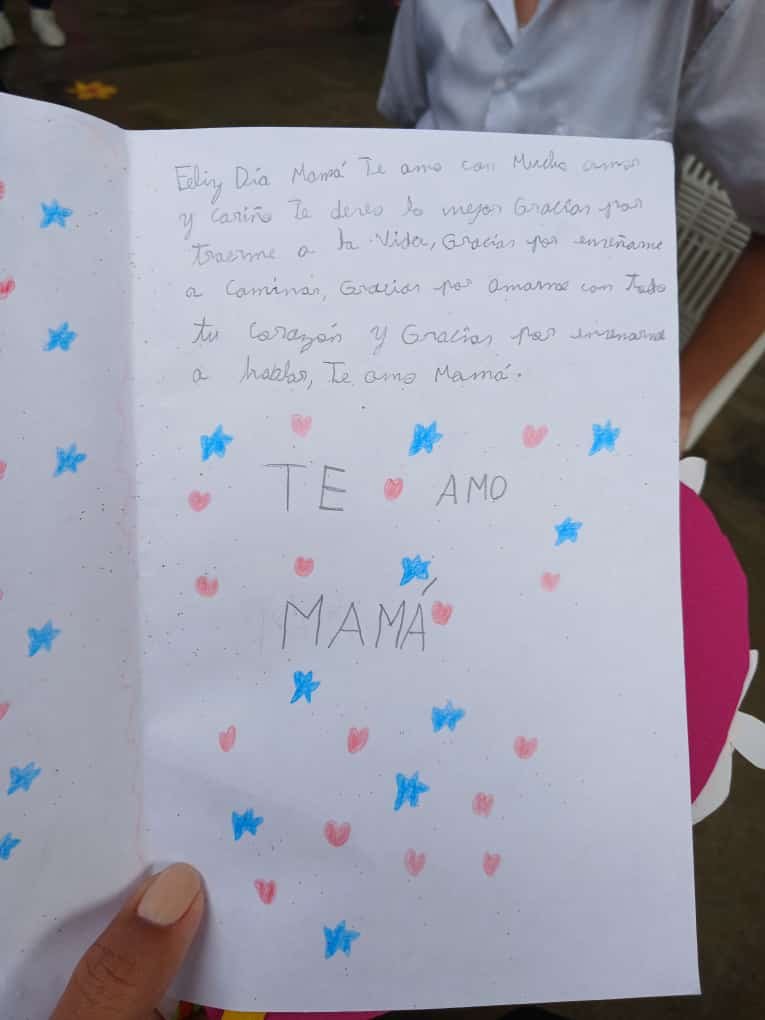 Feliz Día Mamá Te amo con Mucho amor
y cariño Te deceo lo mejor Gracias por
traerme a la Vida, Gracias por enseñame
a Caminar, Gracias por amarme con todo
tu Corazón y Gracias por ensenarme
a hablar, Te amo Mamá.
TE AMO
MAMÁ